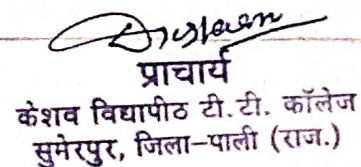 प्राचार्य
केशव विद्यापीठ टी.टी. कॉलेज
सुमेरपुर, जिला-पाली (राज.)